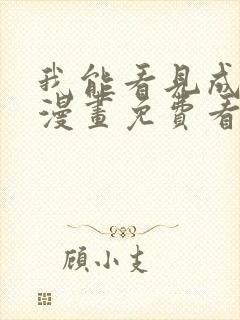 我能看見成
漫畫免費看
顾小支